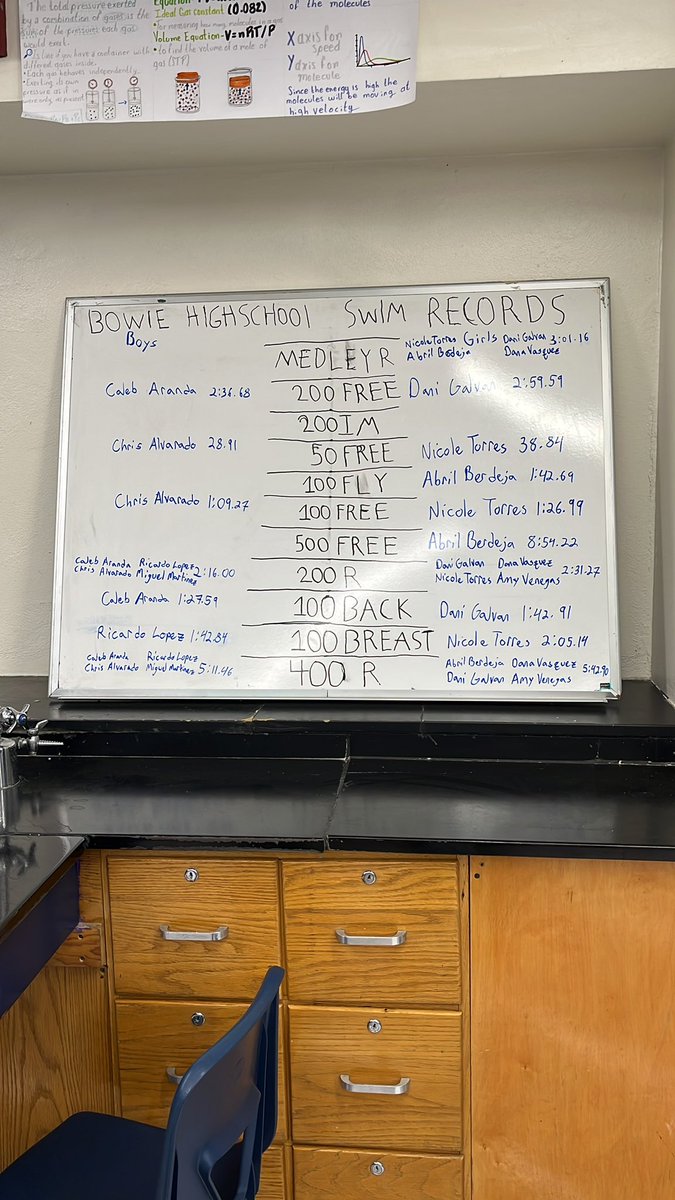 The total pressure exerted
by a combination of gases is the
sum of the pressures each gas
would exert.
different gases inside.
Each gas behaves independently
Ideal Gas constant (0.082)
Volume Equation - V=nRT/P
to find the volume of a mole of
gas (STP)
of the molecules
X axis for
speed
Y axis for
molecule
Since the energy is high the
molecules will be moving at
high velocity
BOWIE HIGHSCHOOL SWIM RECORDS
Boys
Girls
MEDLEY R Nicole Torres Dani Galvan 3:01.16
Abril Berdeja Dana Vasquez
Caleb Aranda 2:36.68 200 FREE Dani Galvan 2:59.59
200 IM
Chris Alvarado 28.91 50 FREE Nicole Torres 38.84
100 FLY Abril Berdeja 1:42.69
Chris Alvarado 1:09.27 100 FREE Nicole Torres 1:26.99
500 FREE Abril Berdeja 8:54.22
Caleb Aranda Ricardo Lopez 2:16.00 200 R Dani Galvan Dana Vasquez 2:31.27
Chris Alvarado Miguel Martinez Nicole Torres Amy Venegas
Caleb Aranda 1:27.59 100 BACK Dani Galvan 1:42.91
Ricardo Lopez 1:42.84 100 BREAST Nicole Torres 2:05.14
Caleb Aranda Ricardo Lopez 400 R Abril Berdeja Dana Vasquez 5:42.90
Chris Alvarado Miguel Martinez 5:11.46 Dani Galvan Amy Venegas